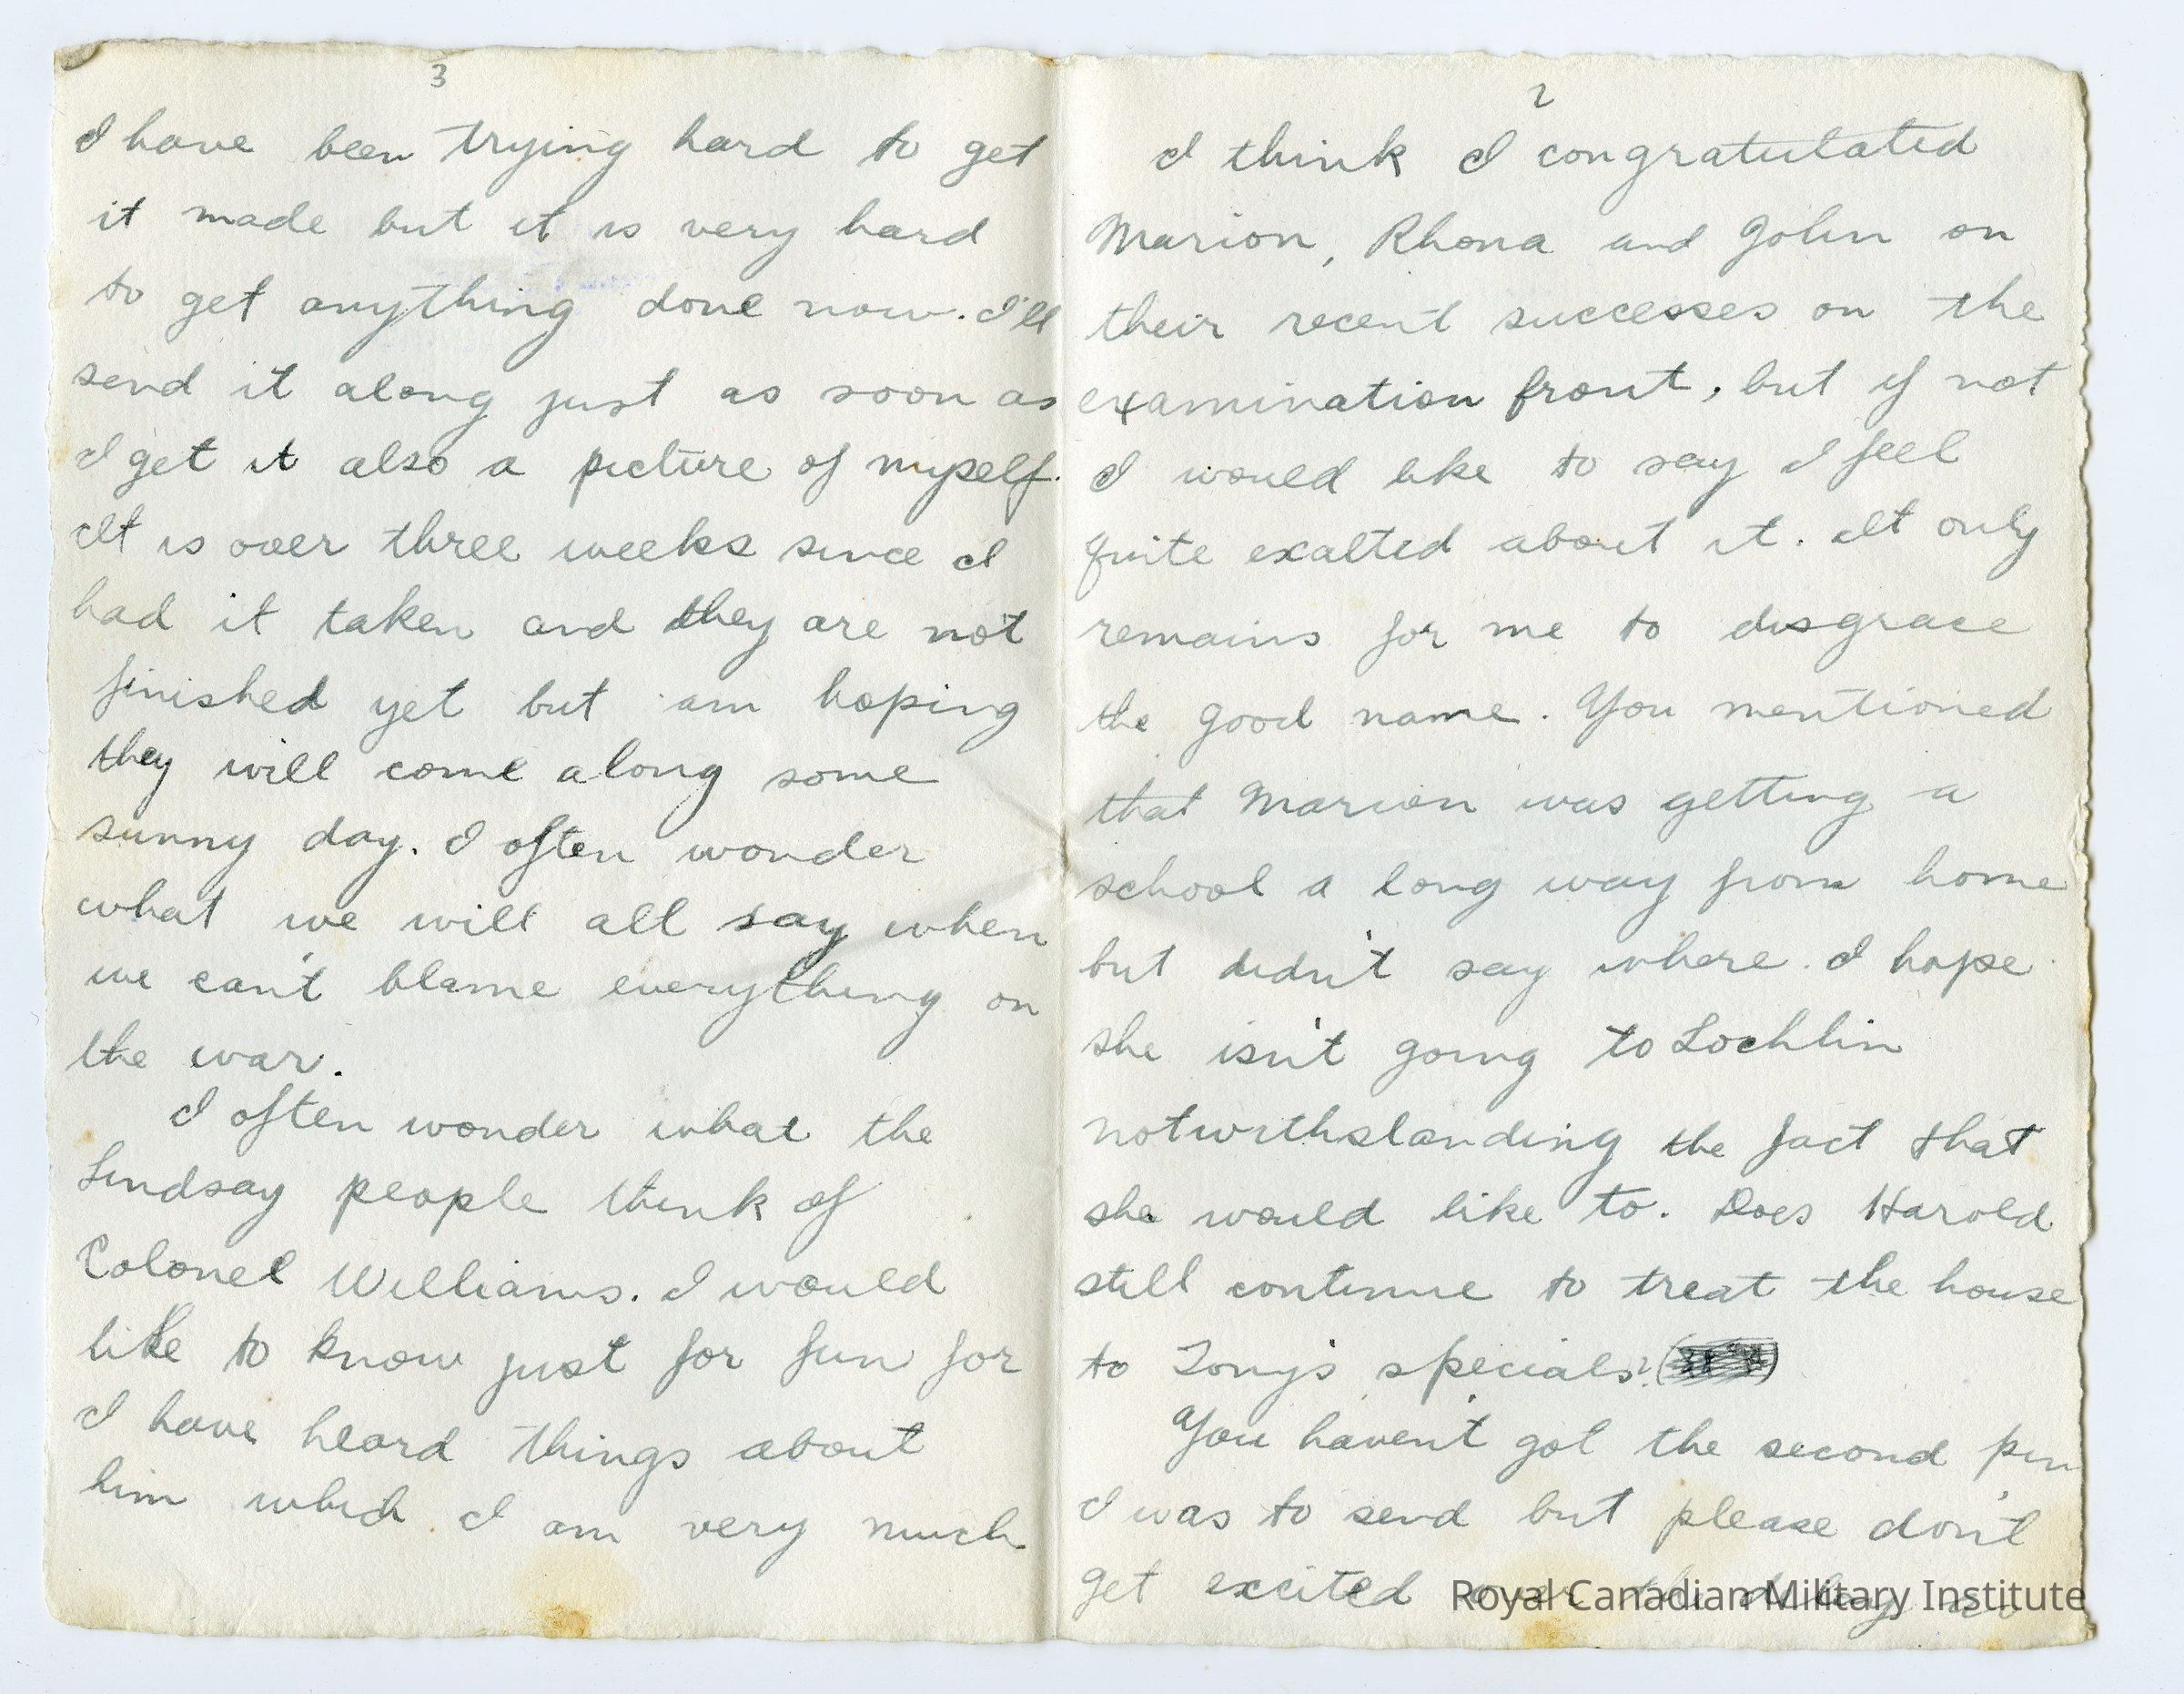 2
I think I congratulated
Marion, Rhona and John on
their recent successes on the
examination front, but if not
I would like to say I feel
quite exalted about it. It only
remains for me to disgrace
the good name. You mentioned
that Marion was getting a
school a long way from home
but didn't say where. I hope
she isn't going to Lochlin
notwithstanding the fact that
she would like to. Does Harold
still continue to treat the house
to Tony's specials?
You haven't got the second pin
I was to send but please don't
get excited over the delay as
3
I have been trying hard to get
it made but it is very hard
to get anything done now. I'll
send it along just as soon as
I get it also a picture of myself.
It is over three weeks since I
had it taken and they are not
finished yet but am hoping
they will come along some
sunny day. I often wonder
what we will all say when
we can't blame everything on
the war.
I often wonder what the
Lindsay people think of
Colonel Williams. I would
like to know just for fun for
I have heard things about
him which I am very much
Royal Canadian Military Institute